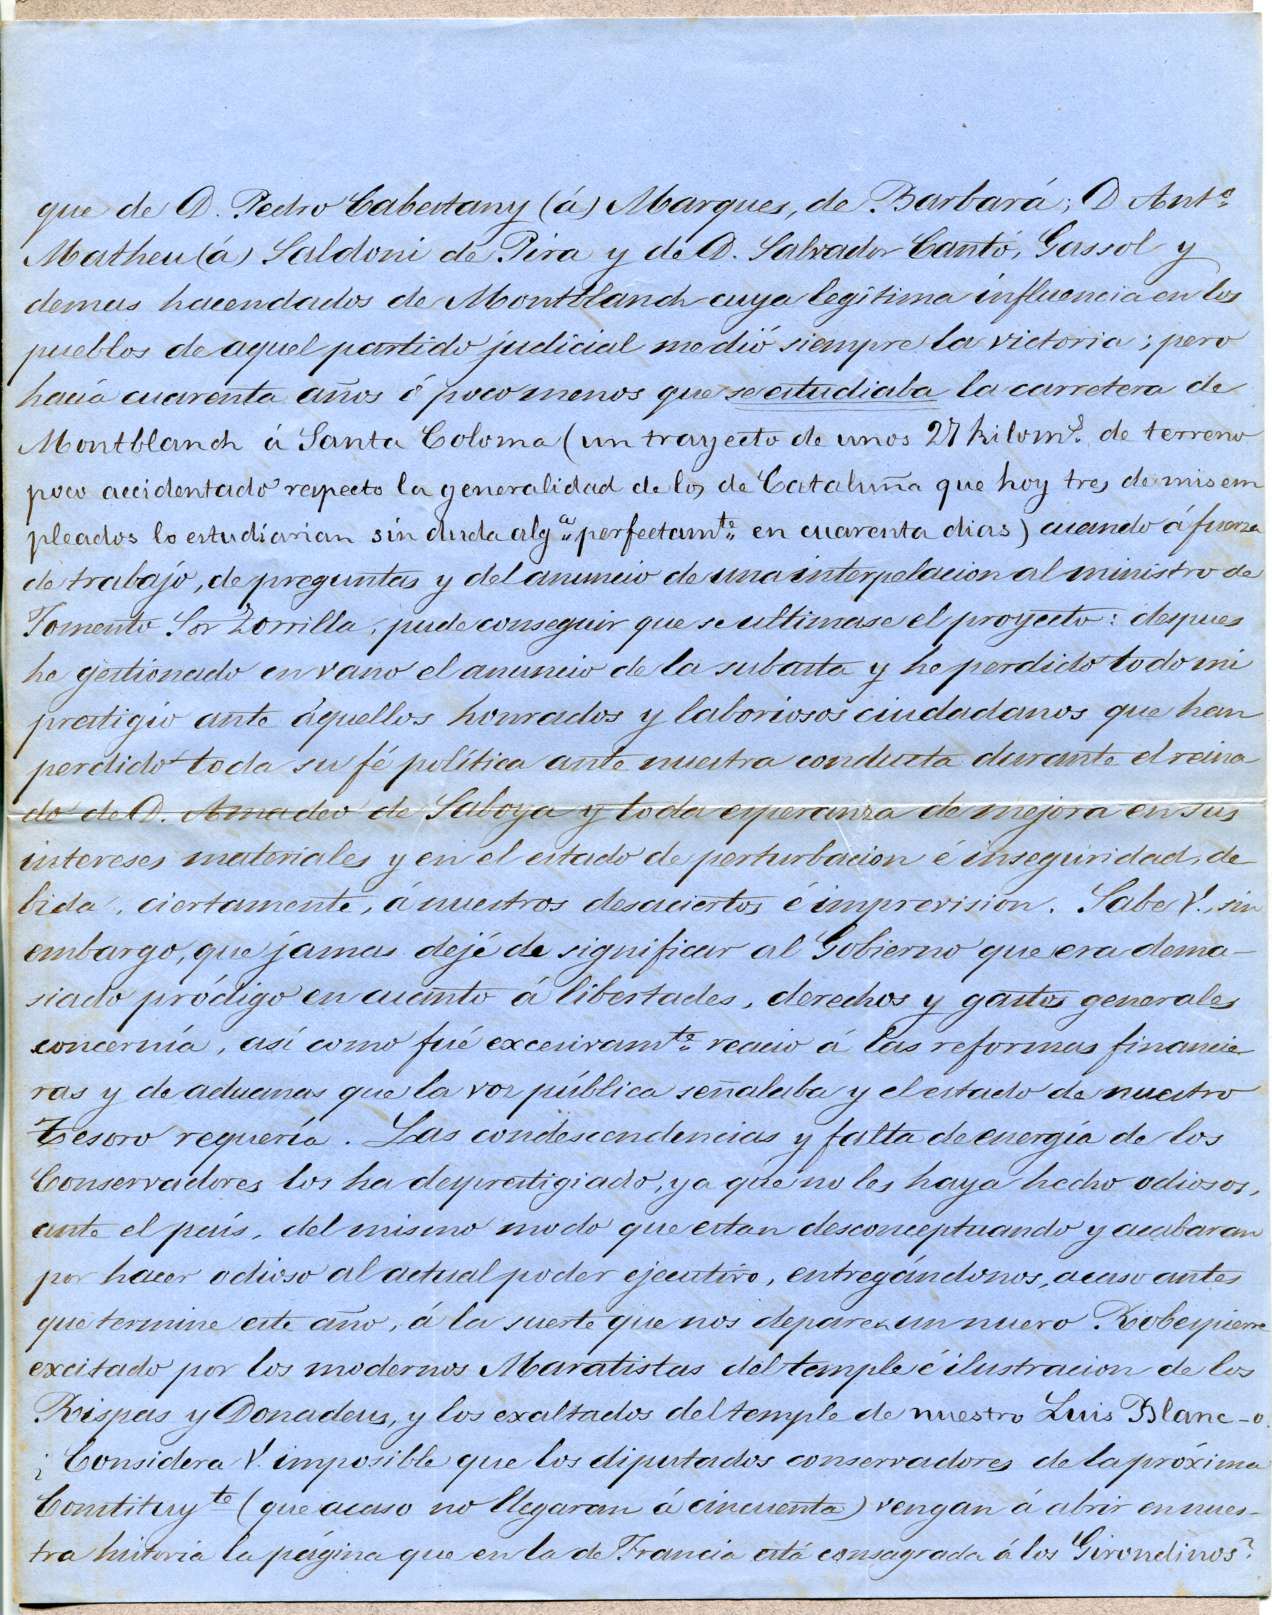 que de D. Pedro Cabestany (á) Marques, de Barbará; D. Antº
Matheu (á) Saldoni de Pira y de D. Salvador Cantó, Gassol y
demas hacendados de Montblanch cuya legítima influencia en los
pueblos de aquel partido judicial me dió siempre la victoria; pero
hacía cuarenta años ó poco menos que se estudiaba la carretera de
Montblanch á Santa Coloma (un trayecto de unos 27 kiloms. de terreno
poco accidentado respecto la generalidad de los de Cataluña que hoy tres de mis em
pleados lo estudiarian sin duda alga perfectamte en cuarenta dias) cuando á fuerza
de trabajo, de preguntas y del anuncio de una interpelacion al ministro de
Fomento Sor Zorrilla, pude conseguir que se ultimase el proyecto: despues
he gestionado en vano el anuncio de la subasta y he perdido todo mi
prestigio ante aquellos honrados y laboriosos ciudadanos que han
perdido toda su fé política ante nuestra conducta durante el reina
do de D. Amadeo de Saboya y toda esperanza de mejora en sus
intereses materiales y en el estado de perturbacion é inseguridad, de
bida, ciertamente, á nuestros desaciertos é imprevision. Sabe V., sin
embargo, que jamas dejé de significar al Gobierno que era dema-
siado pródigo en cuanto á libertades, derechos y gastos generales
concernía, así como fué excesivamte reacio á las reformas financie
ras y de aduanas que la voz pública señalaba y el estado de nuestro
Tesoro requería. Las condescendencias y falta de energía de los
Conservadores los ha desprestigiado, ya que no les haya hecho odiosos,
ante el país, del mismo modo que estan desconceptuando y acabaran
por hacer odioso al actual poder ejecutivo, entregándonos, acaso antes
que termine este año, á la suerte que nos depare un nuevo Robespierre
excitado por los modernos Maratistas del temple é ilustracion de los
Rispas y Donadeus, y los exaltados del temple de nuestro Luis Blanc-o.
¿Considera V. imposible que los diputados conservadores de la próxima
Constituyte (que acaso no llegaran á cincuenta) vengan á abrir en nues-
tra historia la página que en la de Francia está consagrada á los Girondinos?